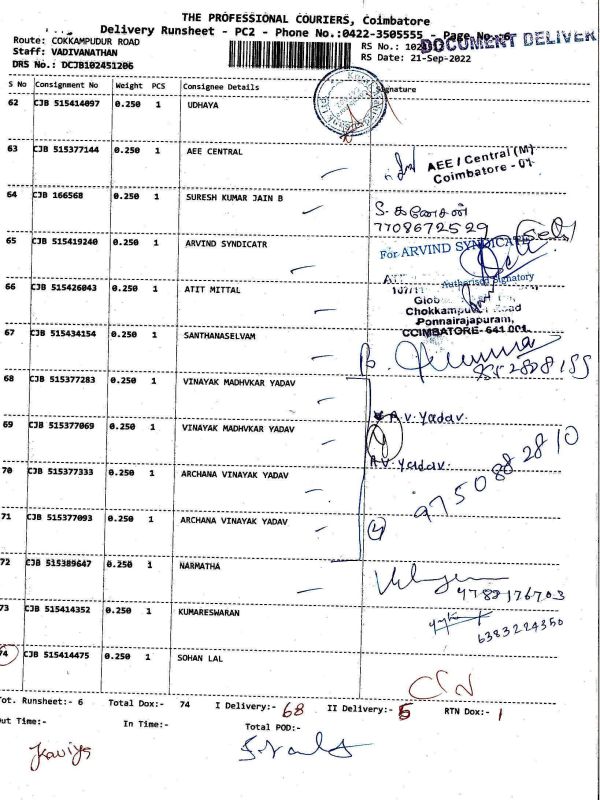 THE PROFESSIONAL COURIERS, Coimbatore
Delivery Runsheet - PC2 - Phone No.:0422-3505555 - Page No.:6
Route: COKKAMPUDUR ROAD
Staff: VADIVANATHAN
DRS No.: DCJB102451206
RS Date: 21-Sep-2022
DOCUMENT DELIVER
S No Consignment No Weight PCS Consignee Details Signature
62 CJB 515414097 0.250 1 UDHAYA
63 CJB 515377144 0.250 1 AEE CENTRAL
AEE / Central (M)
Coimbatore - 01
64 CJB 166568 0.250 1 SURESH KUMAR JAIN B
S. கணேசன்
7708672529
65 CJB 515419240 0.250 1 ARVIND SYNDICATR
For ARVIND SYNDICATE
Authorised Signatory
66 CJB 515426043 0.250 1 ATIT MITTAL
Chokkampudur Road
Ponnairajapuram,
COIMBATORE- 641 001.
67 CJB 515434154 0.250 1 SANTHANASELVAM
68 CJB 515377283 0.250 1 VINAYAK MADHVKAR YADAV
A.V. Yadav.
69 CJB 515377069 0.250 1 VINAYAK MADHVKAR YADAV
A.V. Yadav.
70 CJB 515377333 0.250 1 ARCHANA VINAYAK YADAV
9750882810
71 CJB 515377093 0.250 1 ARCHANA VINAYAK YADAV
4
72 CJB 515389647 0.250 1 NARMATHA
73 CJB 515414352 0.250 1 KUMARESWARAN
6383224350
74 CJB 515414475 0.250 1 SOHAN LAL
Tot. Runsheet:- 6 Total Dox:- 74 I Delivery:- 68 II Delivery:- 5 RTN Dox:- 1
Out Time:- In Time:- Total POD:-
Kaviya